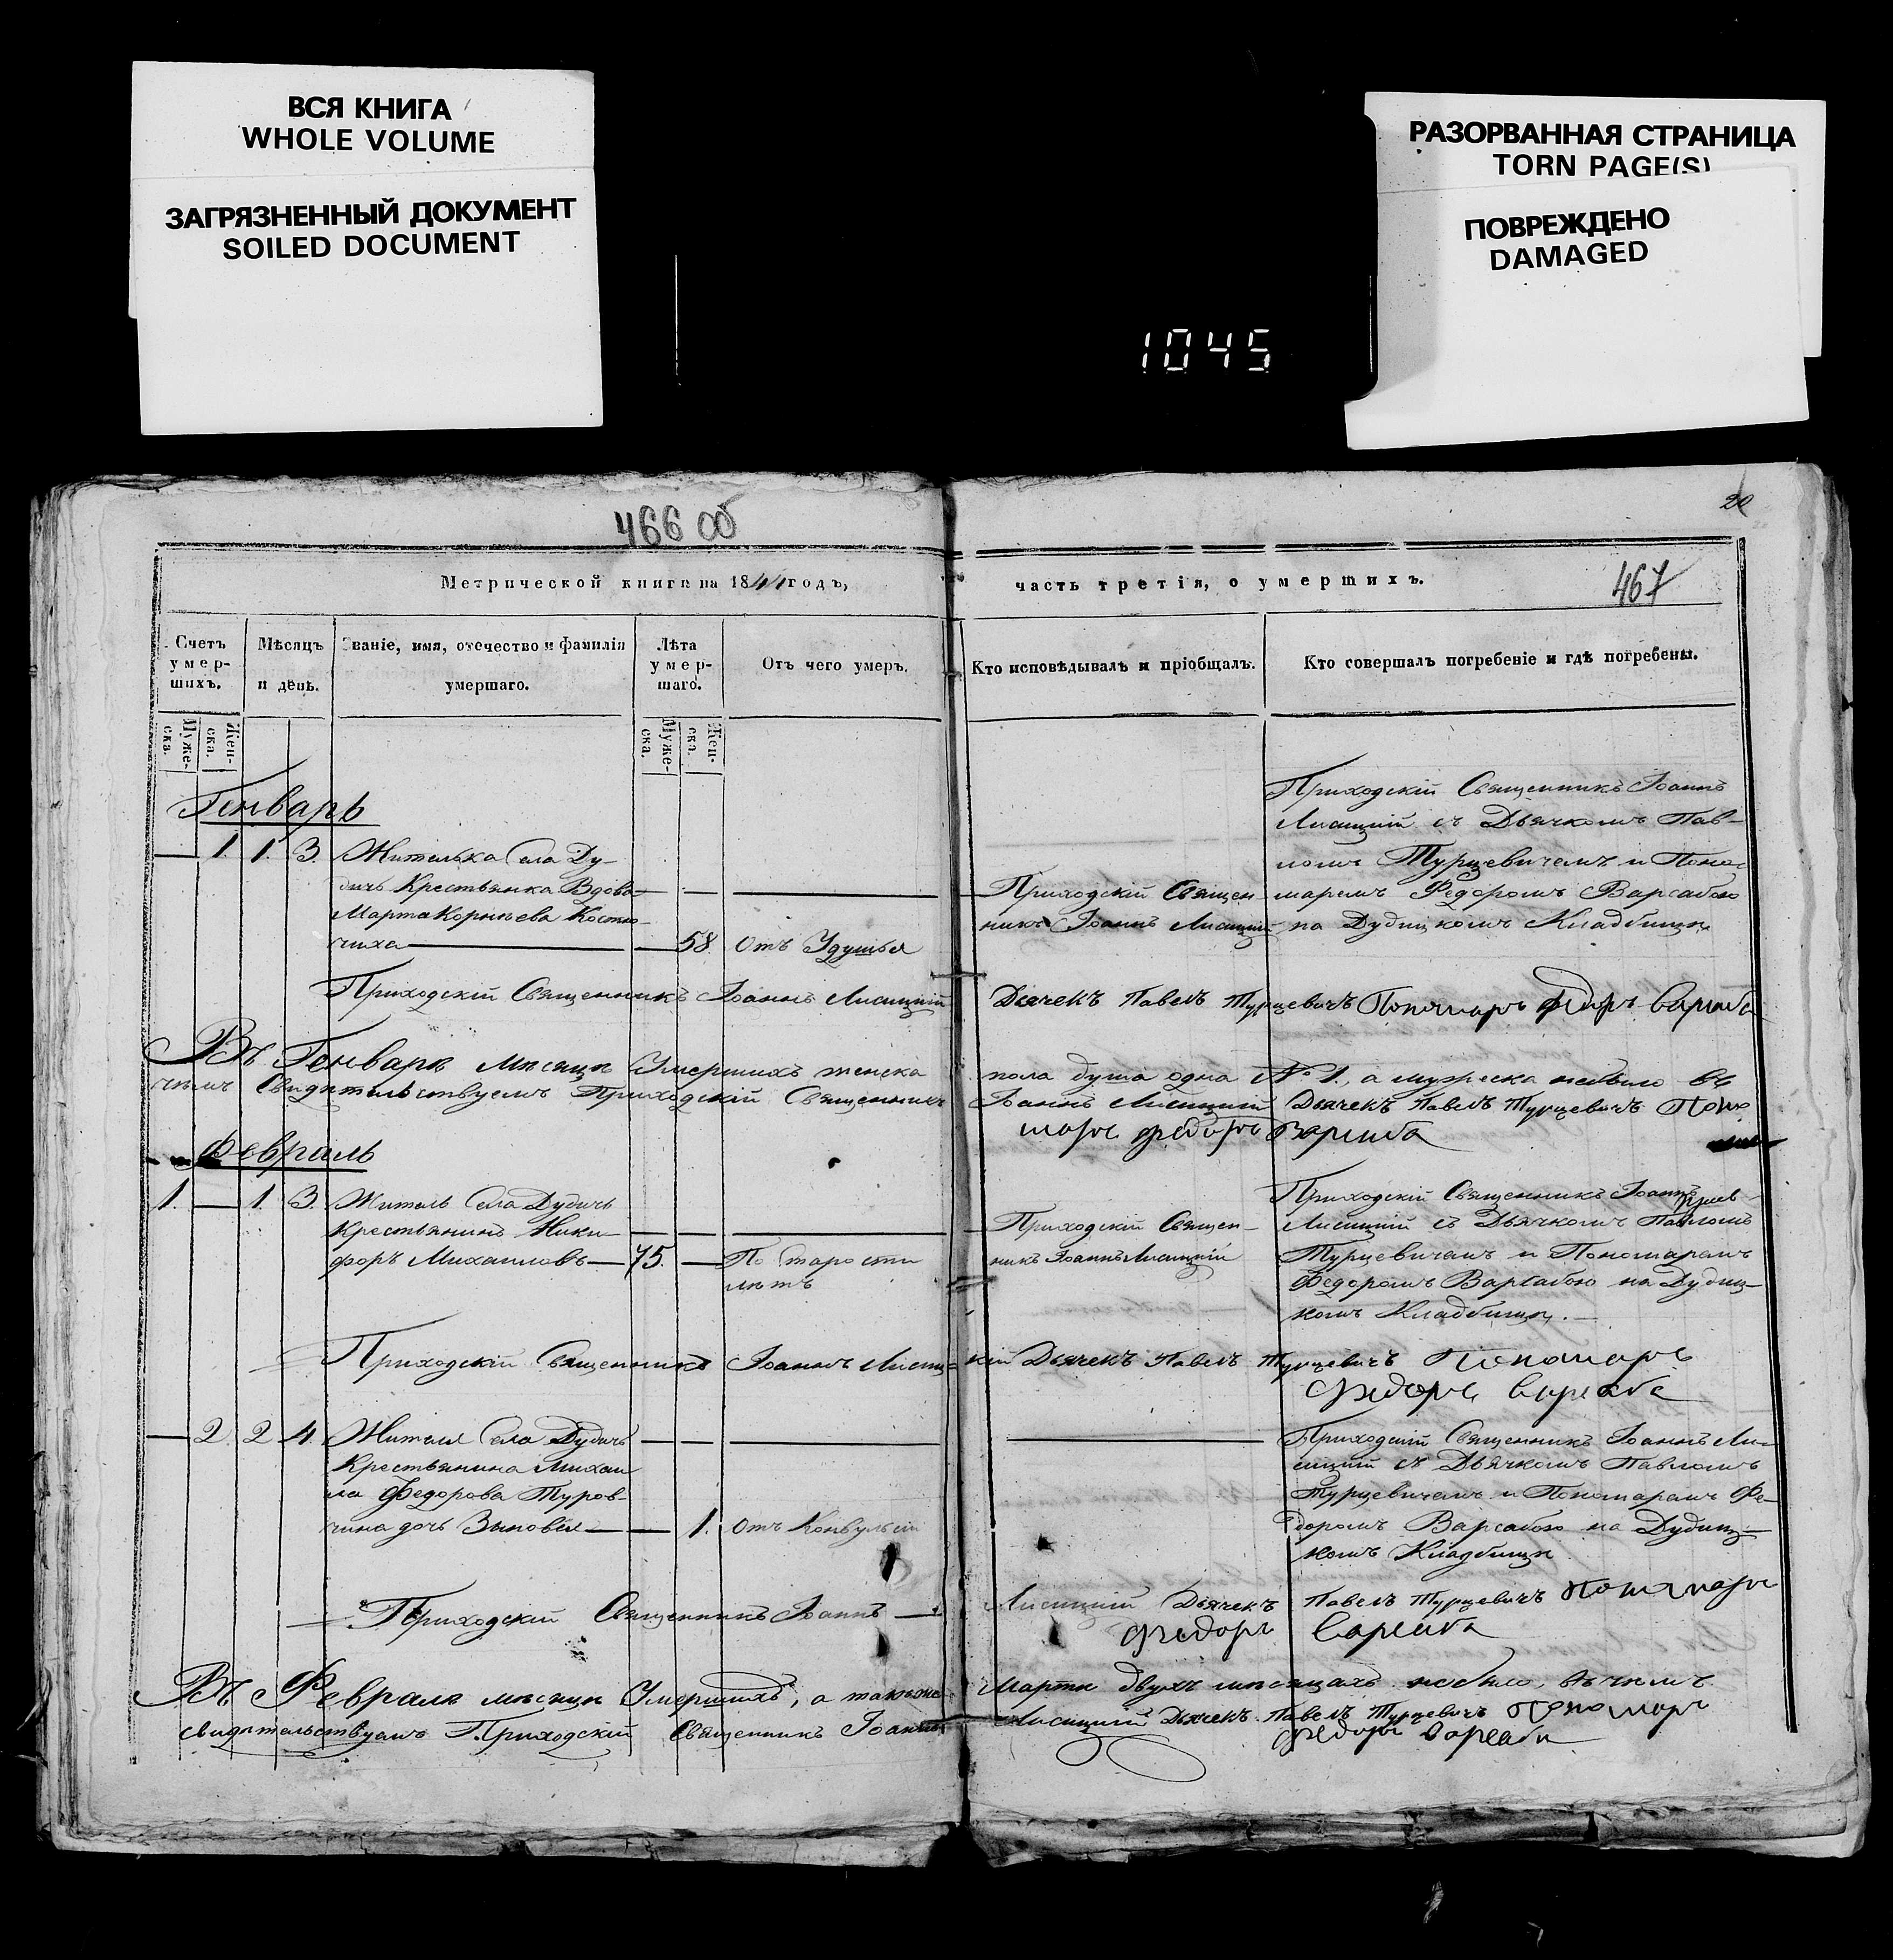 ВСЯ КНИГА
WHOLE VOLUME
ЗАГРЯЗНЕННЫЙ ДОКУМЕНТ
SOILED DOCUMENT
РАЗОРВАННАЯ СТРАНИЦА
TORN PAGE(S)
ПОВРЕЖДЕНО
DAMAGED
1045
466 об
Метрической книги на 1844 годъ,
Счетъ умер-шихъ.
Мѣсяцъ и день.
Званіе, имя, отечество и фамилія умершаго.
Лѣта умер-шаго.
Отъ чего умеръ.
Муже-ска.
Жен-ска.
Муже-ска.
Жен-ска.
Генварь
1. 1. 3. Жителька Села Ду-
дичь Крестьянка Вдова
Марта Корнѣева Костю-
чиха 58. Отъ Удушья
Приходскій Священникъ Іоаннъ Лисицкій
Въ Генварѣ мѣсяцѣ Умершихъ женска
чѣмъ Свидѣтельствуемъ Приходскій Священникъ
Февраль
1. 1. 3. Житель Села Дудичь
Крестьянинъ Ники-
форъ Михаиловъ 75. По старости
лѣтъ
Приходскій Священникъ Іоаннъ Лисиц-
2. 2. 4. Жителя Села Дудичь
Крестьянина Михаи-
ла Федорова Туров-
чина дочь Зыновѣя 1. Отъ Конвульсіи
Приходскій Священникъ Іоаннъ
Въ Февралѣ мѣсяцѣ Умершихъ, а также
свидѣтельствуемъ Приходскій Священникъ Іоаннъ
20
часть третія, о умершихъ.
467
Кто исповѣдывалъ и пріобщалъ.
Кто совершалъ погребеніе и гдѣ погребены.
Приходскій Священникъ Іоаннъ
Лисицкій съ Дьячкомъ Пав-
ломъ Турцевичемъ и Поно-
Приходскій Священ- маремъ Федоромъ Варсабою
никъ Іоаннъ Лисицкій на Дудицкомъ Кладбищѣ
Дьячекъ Павелъ Турцевичъ Пономарь Федоръ Варсаба
пола душа одна № 1., а мужеска небыло въ
Іоаннъ Лисицкій Дьячекъ Павелъ Турцевичъ Поно
марь Федоръ Варсаба
Приходскій Священникъ Іоаннъ
Приходскій Священ- Лисицкій съ Дьячкомъ Павломъ
никъ Іоаннъ Лисицкій Турцевичемъ и Пономаремъ
Федоромъ Варсабою на Дудиц-
комъ Кладбищѣ.
кій Дьячекъ Павелъ Турцевичъ Пономарь
Федоръ Варсаба
Приходскій Священникъ Іоаннъ Ли-
сицкій съ Дьячкомъ Павломъ
Турцевичемъ и Пономаремъ Фе-
доромъ Варсабою на Дудиц-
комъ Кладбищѣ
Лисицкій Дьячекъ Павелъ Турцевичъ Пономарь
Федоръ Варсаба
Мартѣ двухъ мѣсяцахъ небыло, въ чѣмъ
Лисицкій Дьячекъ Павелъ Турцевичъ Пономарь
Федоръ Варсаба